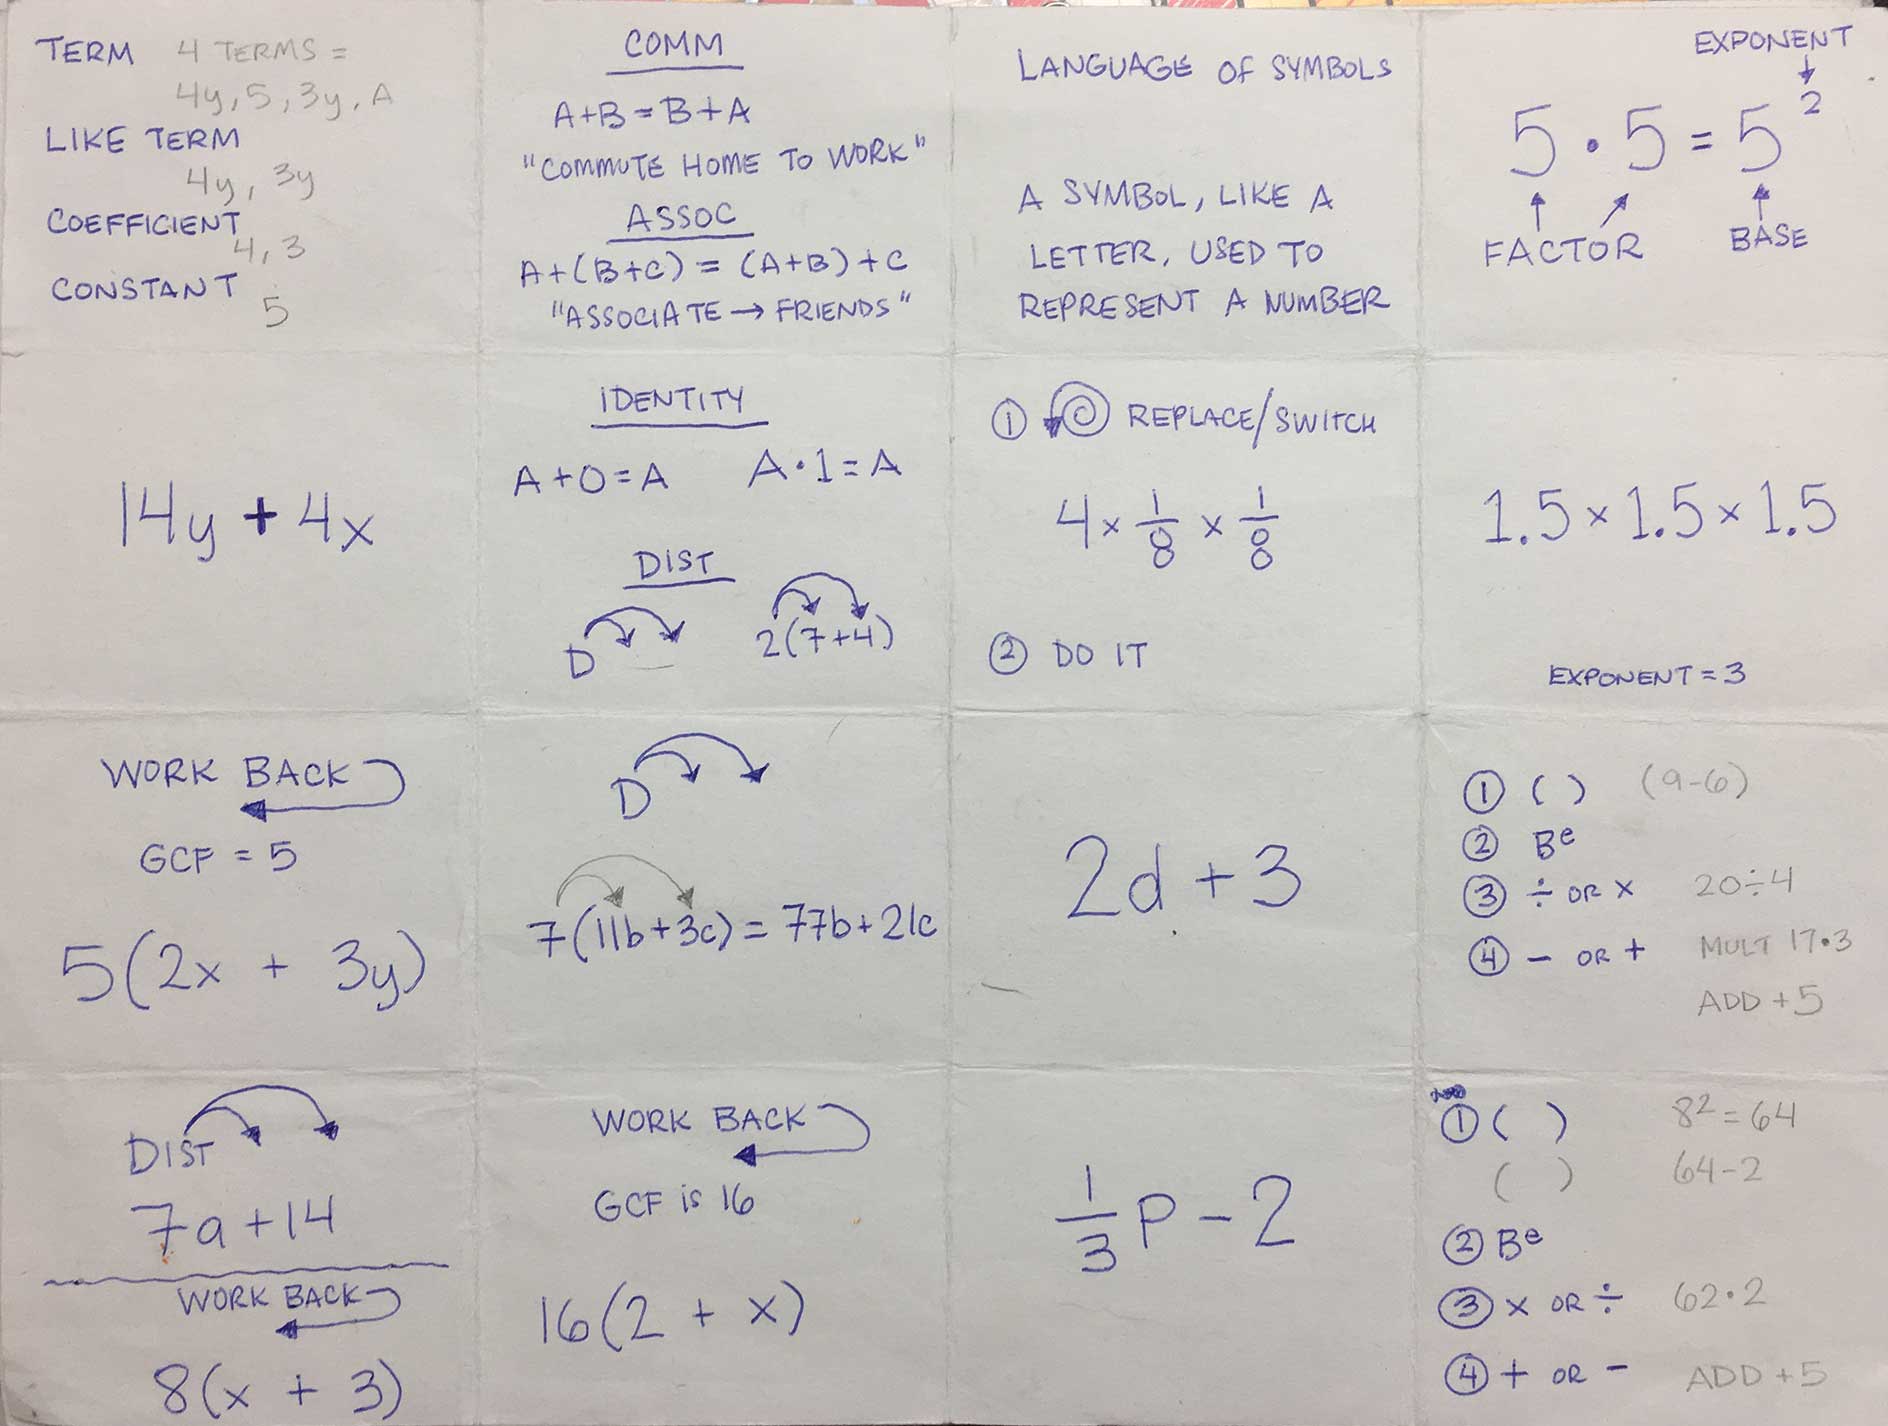 TERM 4 TERMS =
4y, 5, 3y, A
LIKE TERM
4y, 3y
COEFFICIENT
4, 3
CONSTANT
5
COMM
A+B=B+A
"COMMUTE HOME TO WORK"
ASSOC
A+(B+C) = (A+B)+C
"ASSOCIATE → FRIENDS"
LANGUAGE OF SYMBOLS
A SYMBOL, LIKE A
LETTER, USED TO
REPRESENT A NUMBER
EXPONENT
5 · 5 = 5²
FACTOR BASE
14y + 4x
IDENTITY
A+0=A A·1=A
DIST
D 2(7+4)
① REPLACE/SWITCH
4 × 1/8 × 1/8
② DO IT
1.5 × 1.5 × 1.5
EXPONENT = 3
WORK BACK
GCF = 5
5(2x + 3y)
D
7(11b+3c) = 77b+21c
2d + 3
① ( ) (9-6)
② Bᵉ
③ ÷ OR × 20÷4
④ - OR + MULT 17·3
ADD +5
DIST
7a+14
WORK BACK
8(x + 3)
WORK BACK
GCF is 16
16(2 + x)
1/3 P - 2
① ( ) 8²=64
( ) 64-2
② Bᵉ
③ × OR ÷ 62·2
④ + OR - ADD +5